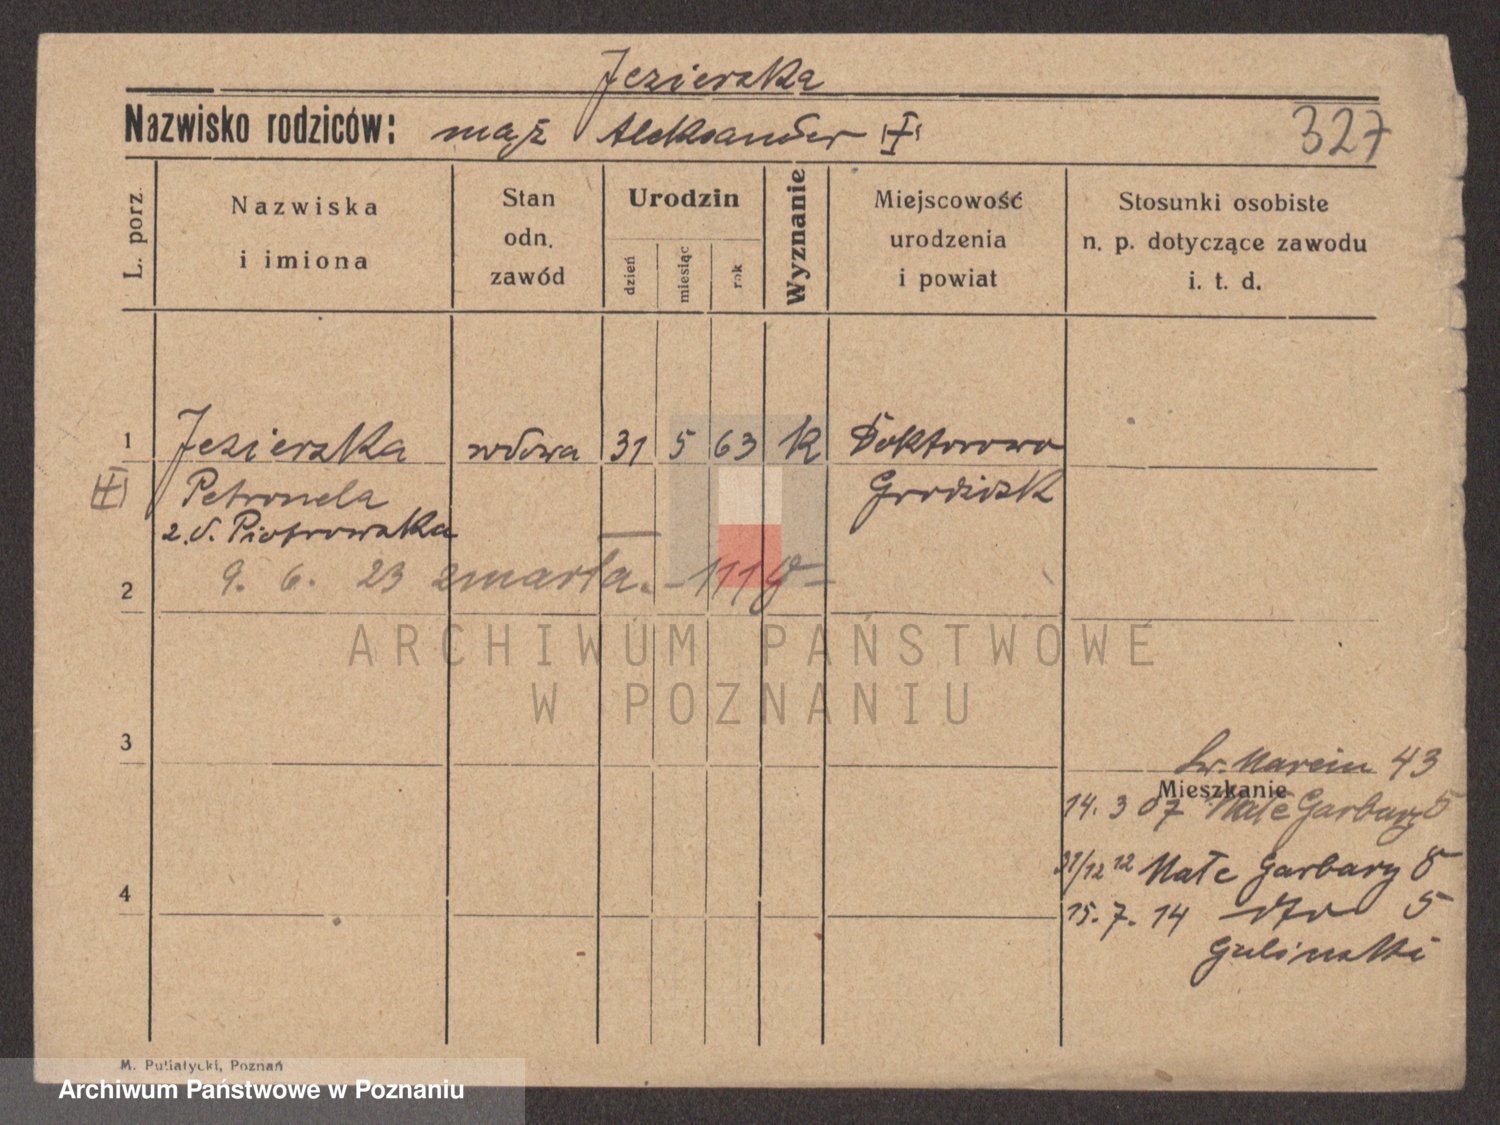 Jezierska
Nazwisko rodziców: mąż Aleksander
327
L. porz.
Nazwiska
i imiona
Stan
odn.
zawód
Urodzin
dzień
miesiąc
rok
Wyznanie
Miejscowość
urodzenia
i powiat
Stosunki osobiste
n. p. dotyczące zawodu
i. t. d.
1 Jezierska wdowa 31 5 63 K Doktorowo
Petronela Grodzisk
z. d. Piotrowska
2 9. 6. 23 zmarła.
ARCHIWUM PAŃSTWOWE
W POZNANIU
3
Św. Marcin 43
Mieszkanie
14. 3 07 Małe Garbary 5
31/12 12 Małe Garbary 8
4
15. 7. 14 dto 5
Gulinski
M. Putiatycki, Poznań
Archiwum Państwowe w Poznaniu